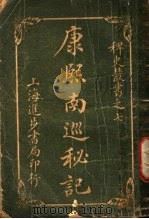 稗史叢書之七
康熙南巡秘記
上海進步書局印行